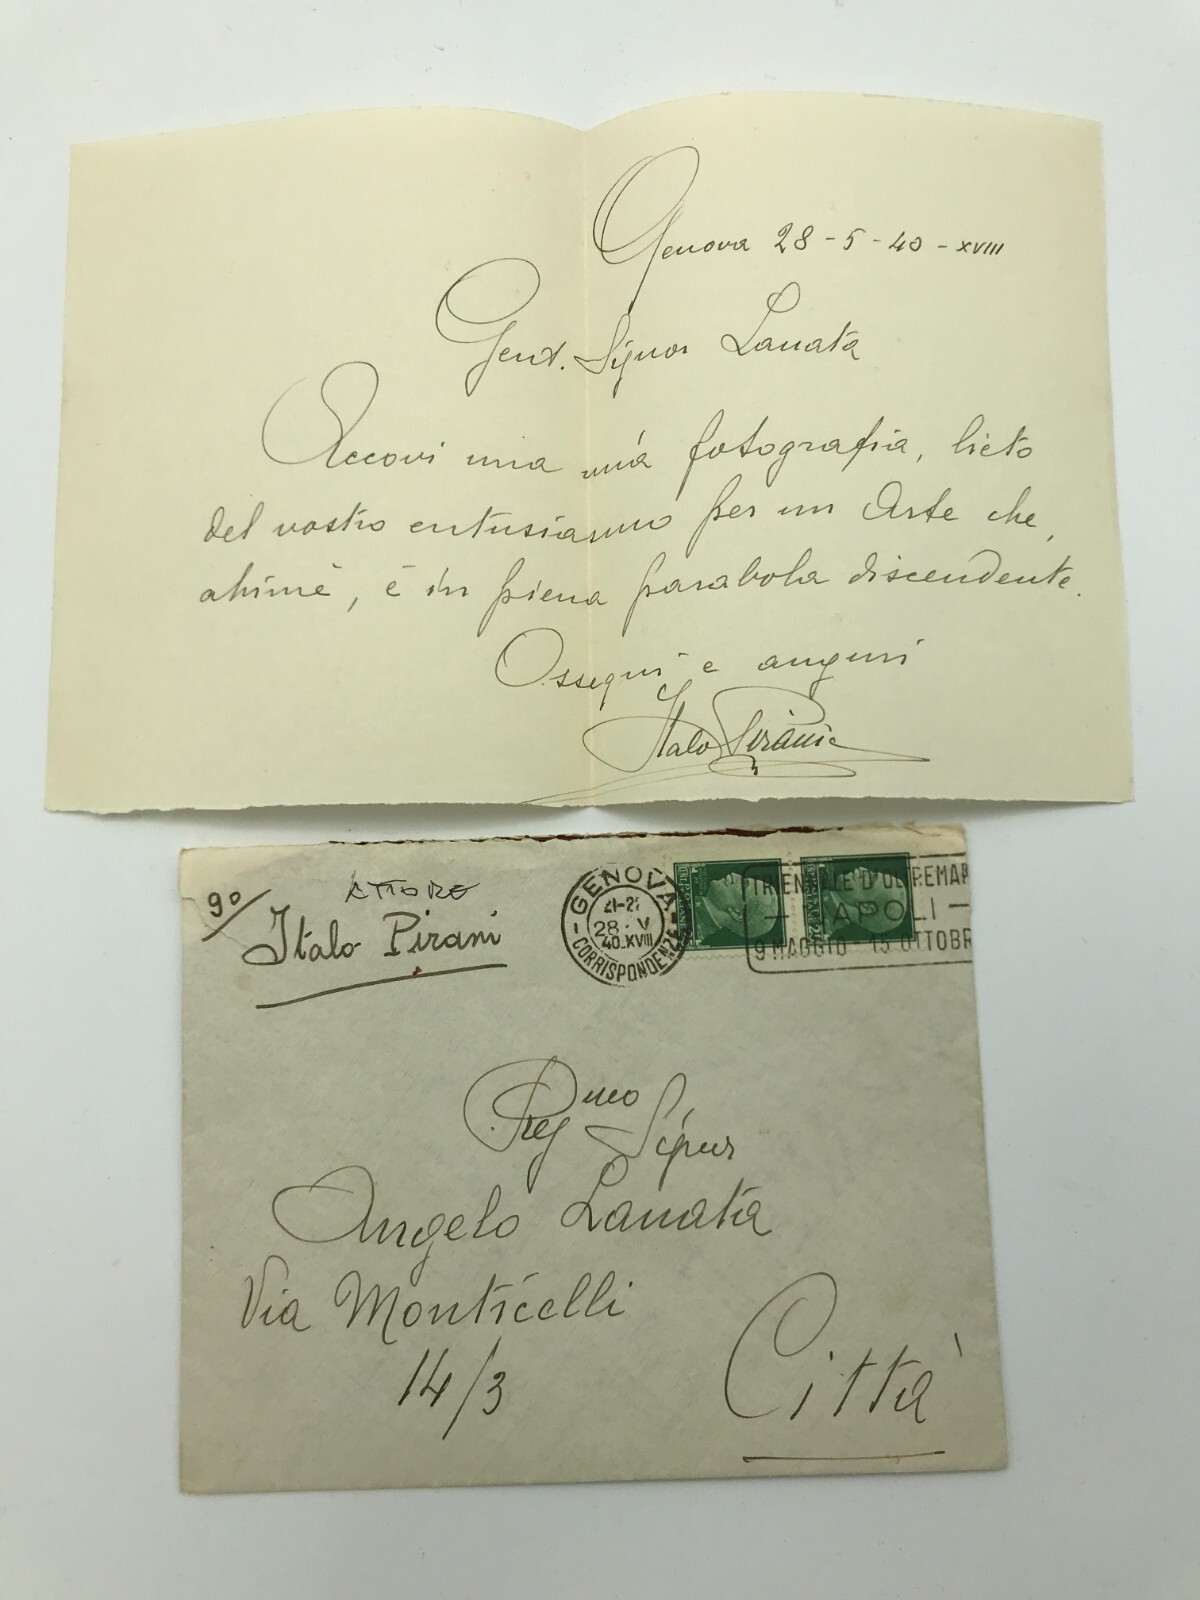 Genova 28-5-40-XVIII
Gent. Signor Lanata
Accovi una mia fotografia, lieto
del vostro entusiasmo per un Arte che,
ahimè, è in piena parabola discendente.
Ossequi e auguri
Italo Pirani
9°/
ATTORE
Italo Pirani
GENOVA
21-2
28·V
40.XVIII
CORRISPONDENZE
TRIENNALE D'OLTREMAR
NAPOLI
9 MAGGIO - 15 OTTOBR
Preg mo Signor
Angelo Lanata
Via Monticelli
14/3
Città